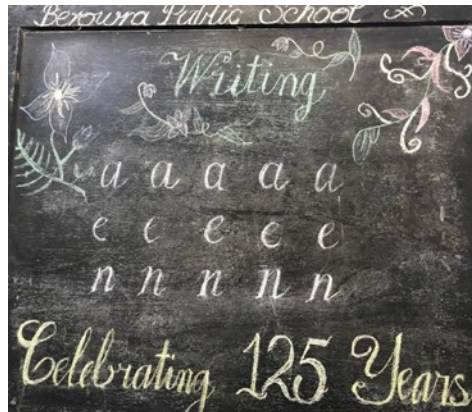 Berowra Public School
Writing
a a a a a
e c e e e
n n n n n
Celebrating 125 Years